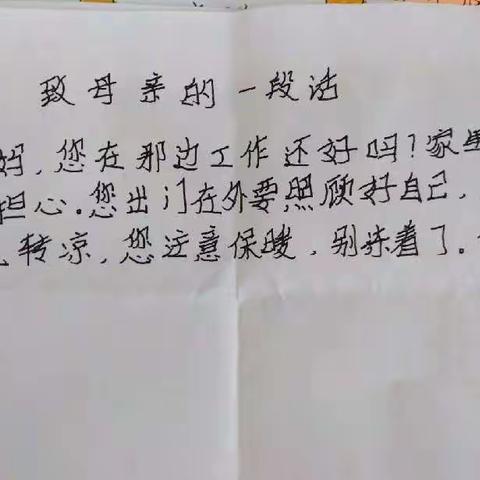 致母亲的一段话
妈,您在那边工作还好吗?家里
担心。您出门在外要照顾好自己,
转凉,您注意保暖,别冻着了。